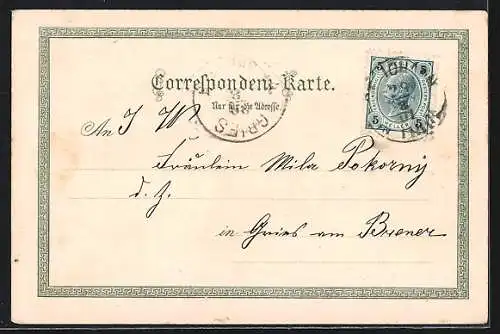 Correspondenz-Karte.
Nur für die Adresse
GRIES
5 5
An I W
Fräulein Mila Pokorny
d. Z.
in Gries am Brener